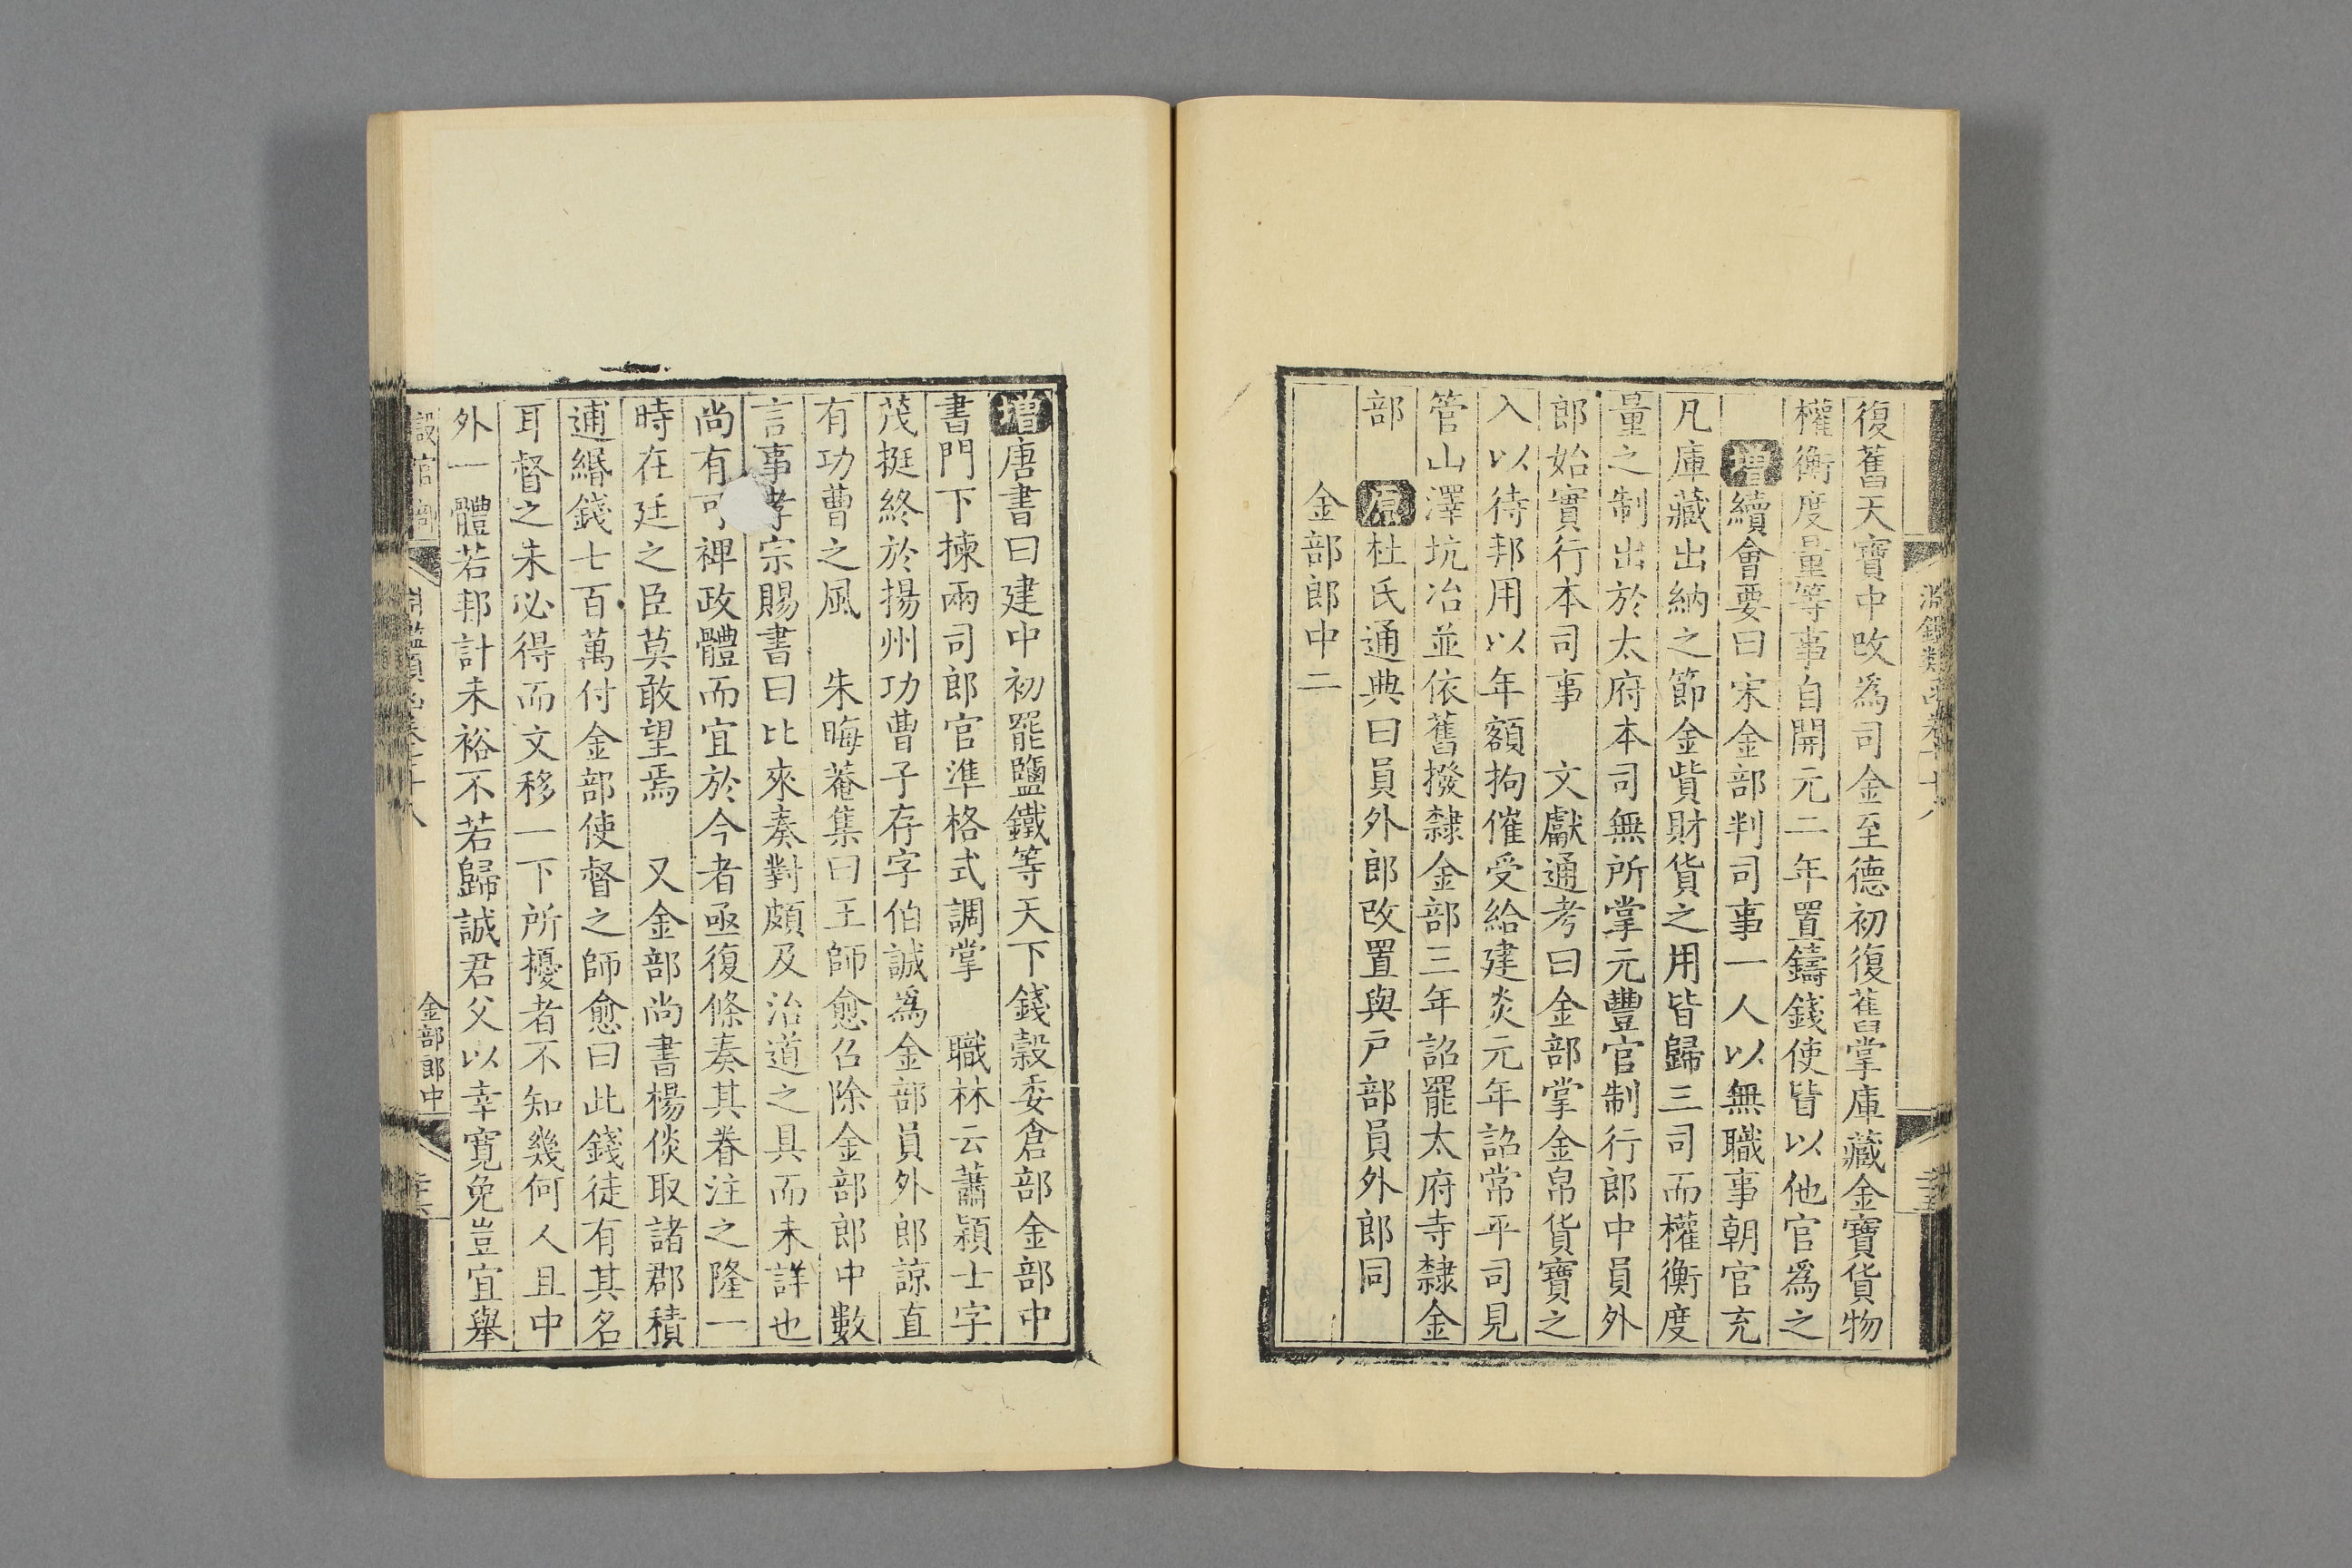 復舊天寶中改爲司金至德初復舊掌庫藏金寶貨物
權衡度量等事自開元二年置鑄錢使皆以他官爲之
增續會要曰宋金部判司事一人以無職事朝官充
凡庫藏出納之節金貲財貨之用皆歸三司而權衡度
量之制出於太府本司無所掌元豐官制行郎中員外
郎始實行本司事 文獻通考曰金部掌金帛貨寶之
入以待邦用以年額拘催受給建炎元年詔常平司見
管山澤坑冶並依舊撥隸金部三年詔罷太府寺隸金
部 原杜氏通典曰員外郎改置與戸部員外郎同
金部郎中二
增唐書曰建中初罷鹽鐵等天下錢穀委倉部金部中
書門下揀兩司郎官準格式調掌 職林云蕭穎士字
茂挺終於揚州功曹子存字伯誠爲金部員外郎諒直
有功曹之風 朱晦菴集曰王師愈召除金部郎中數
言事孝宗賜書曰比來奏對頗及治道之具而未詳也
尚有可裨政體而宜於今者亟復條奏其眷注之隆一
時在廷之臣莫敢望焉 又金部尚書楊倓取諸郡積
逋緡錢七百萬付金部使督之師愈曰此錢徒有其名
耳督之未必得而文移一下所擾者不知幾何人且中
外一體若邦計未裕不若歸誠君父以幸寬免豈宜舉
設官部
淵鑑類函卷七十八
金部郎中